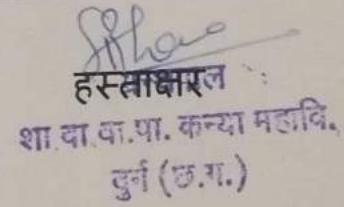 हस्ताक्षर
शा.वा.वा.पा. कन्या महावि.
दुर्ग (छ.ग.)